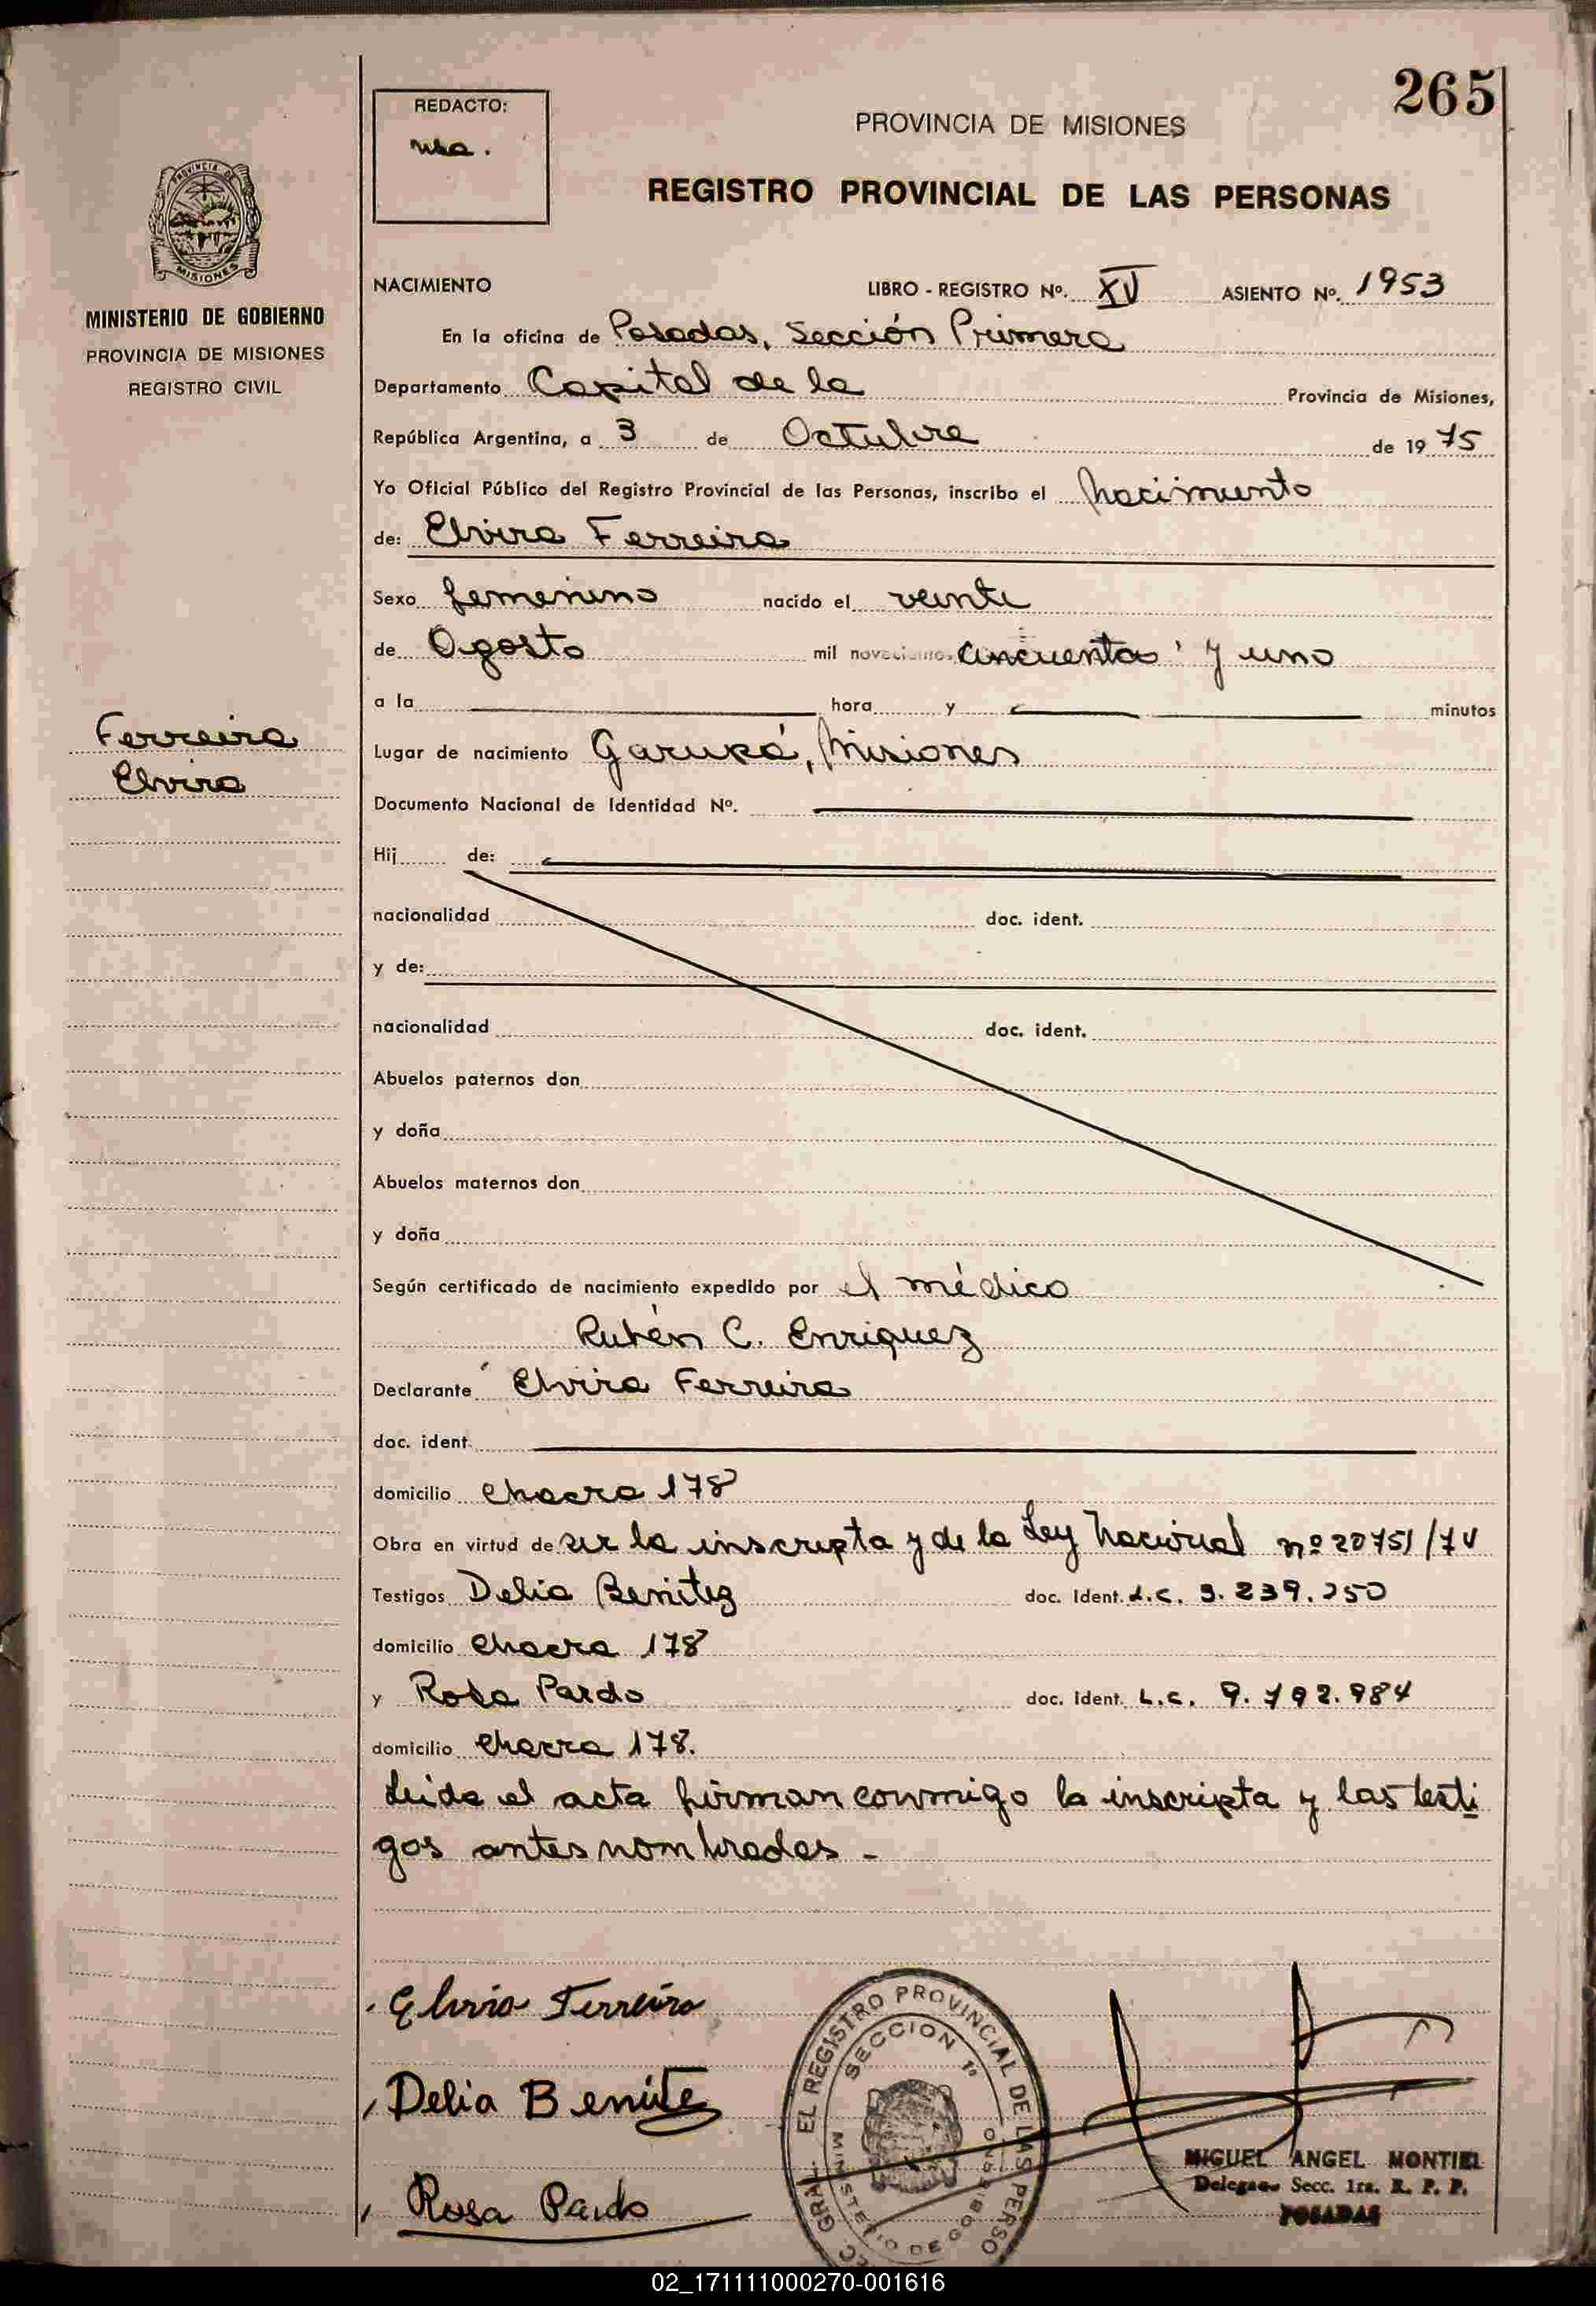 265
REDACTO:
PROVINCIA DE MISIONES
REGISTRO PROVINCIAL DE LAS PERSONAS
PROVINCIA DE
MISIONES
MINISTERIO DE GOBIERNO
PROVINCIA DE MISIONES
REGISTRO CIVIL
Ferreira
Elvira
NACIMIENTO LIBRO - REGISTRO Nº. XV ASIENTO Nº. 1953
En la oficina de Posadas, Sección Primera
Departamento Capital de la Provincia de Misiones,
República Argentina, a 3 de Octubre de 19 75
Yo Oficial Público del Registro Provincial de las Personas, inscribo el Nacimiento
de: Elvira Ferreira
Sexo femenino nacido el veinte
de Agosto mil novecientos cincuenta y uno
a la hora y minutos
Lugar de nacimiento Garupá, Misiones
Documento Nacional de Identidad Nº.
Hij de:
nacionalidad doc. ident.
y de:
nacionalidad doc. ident.
Abuelos paternos don
y doña
Abuelos maternos don
y doña
Según certificado de nacimiento expedido por el médico
Rubén C. Enriquez
Declarante Elvira Ferreira
doc. ident.
domicilio chacra 178
Obra en virtud de ser la inscripta y de la Ley Nacional nº 20751/74
Testigos Delia Benitez doc. Ident. L.C. 3.239.250
domicilio chacra 178
y Rosa Pardo doc. ident. L.C. 9.792.984
domicilio chacra 178.
Leida el acta firman conmigo la inscripta y las testi
gos antes nombradas -
Elviria Ferreira
Delia Benite
Rosa Pardo
EL REGISTRO PROVINCIAL DE LAS PERSO
SECCION 1ª
MINISTERIO DE GOBIERNO
MIGUEL ANGEL MONTIEL
Delegado Secc. 1ra. R. P. P.
POSADAS
02_171111000270-001616